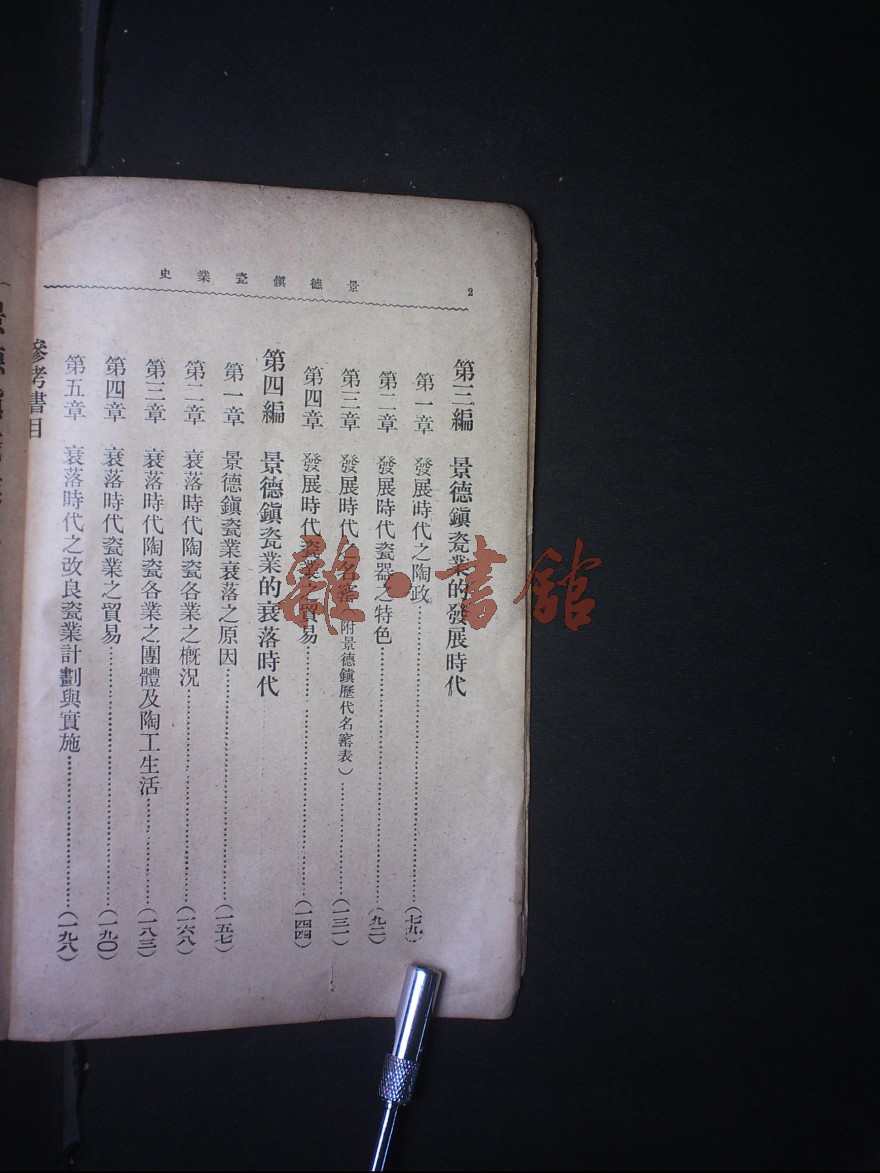 2
景德鎭瓷業史
第三編　景德鎭瓷業的發展時代
第一章　發展時代之陶政……(七九)
第二章　發展時代瓷器之特色……(九二)
第三章　發展時代之名窰(附景德鎭歷代名窰表)……(一三一)
第四章　發展時代瓷業之貿易……(一四四)
第四編　景德鎭瓷業的衰落時代
第一章　景德鎭瓷業衰落之原因……(一五七)
第二章　衰落時代陶瓷各業之槪況……(一六八)
第三章　衰落時代陶瓷各業之團體及陶工生活……(一八三)
第四章　衰落時代瓷業之貿易……(一九〇)
第五章　衰落時代之改良瓷業計劃與實施……(一九八)
參考書目
雜·書館